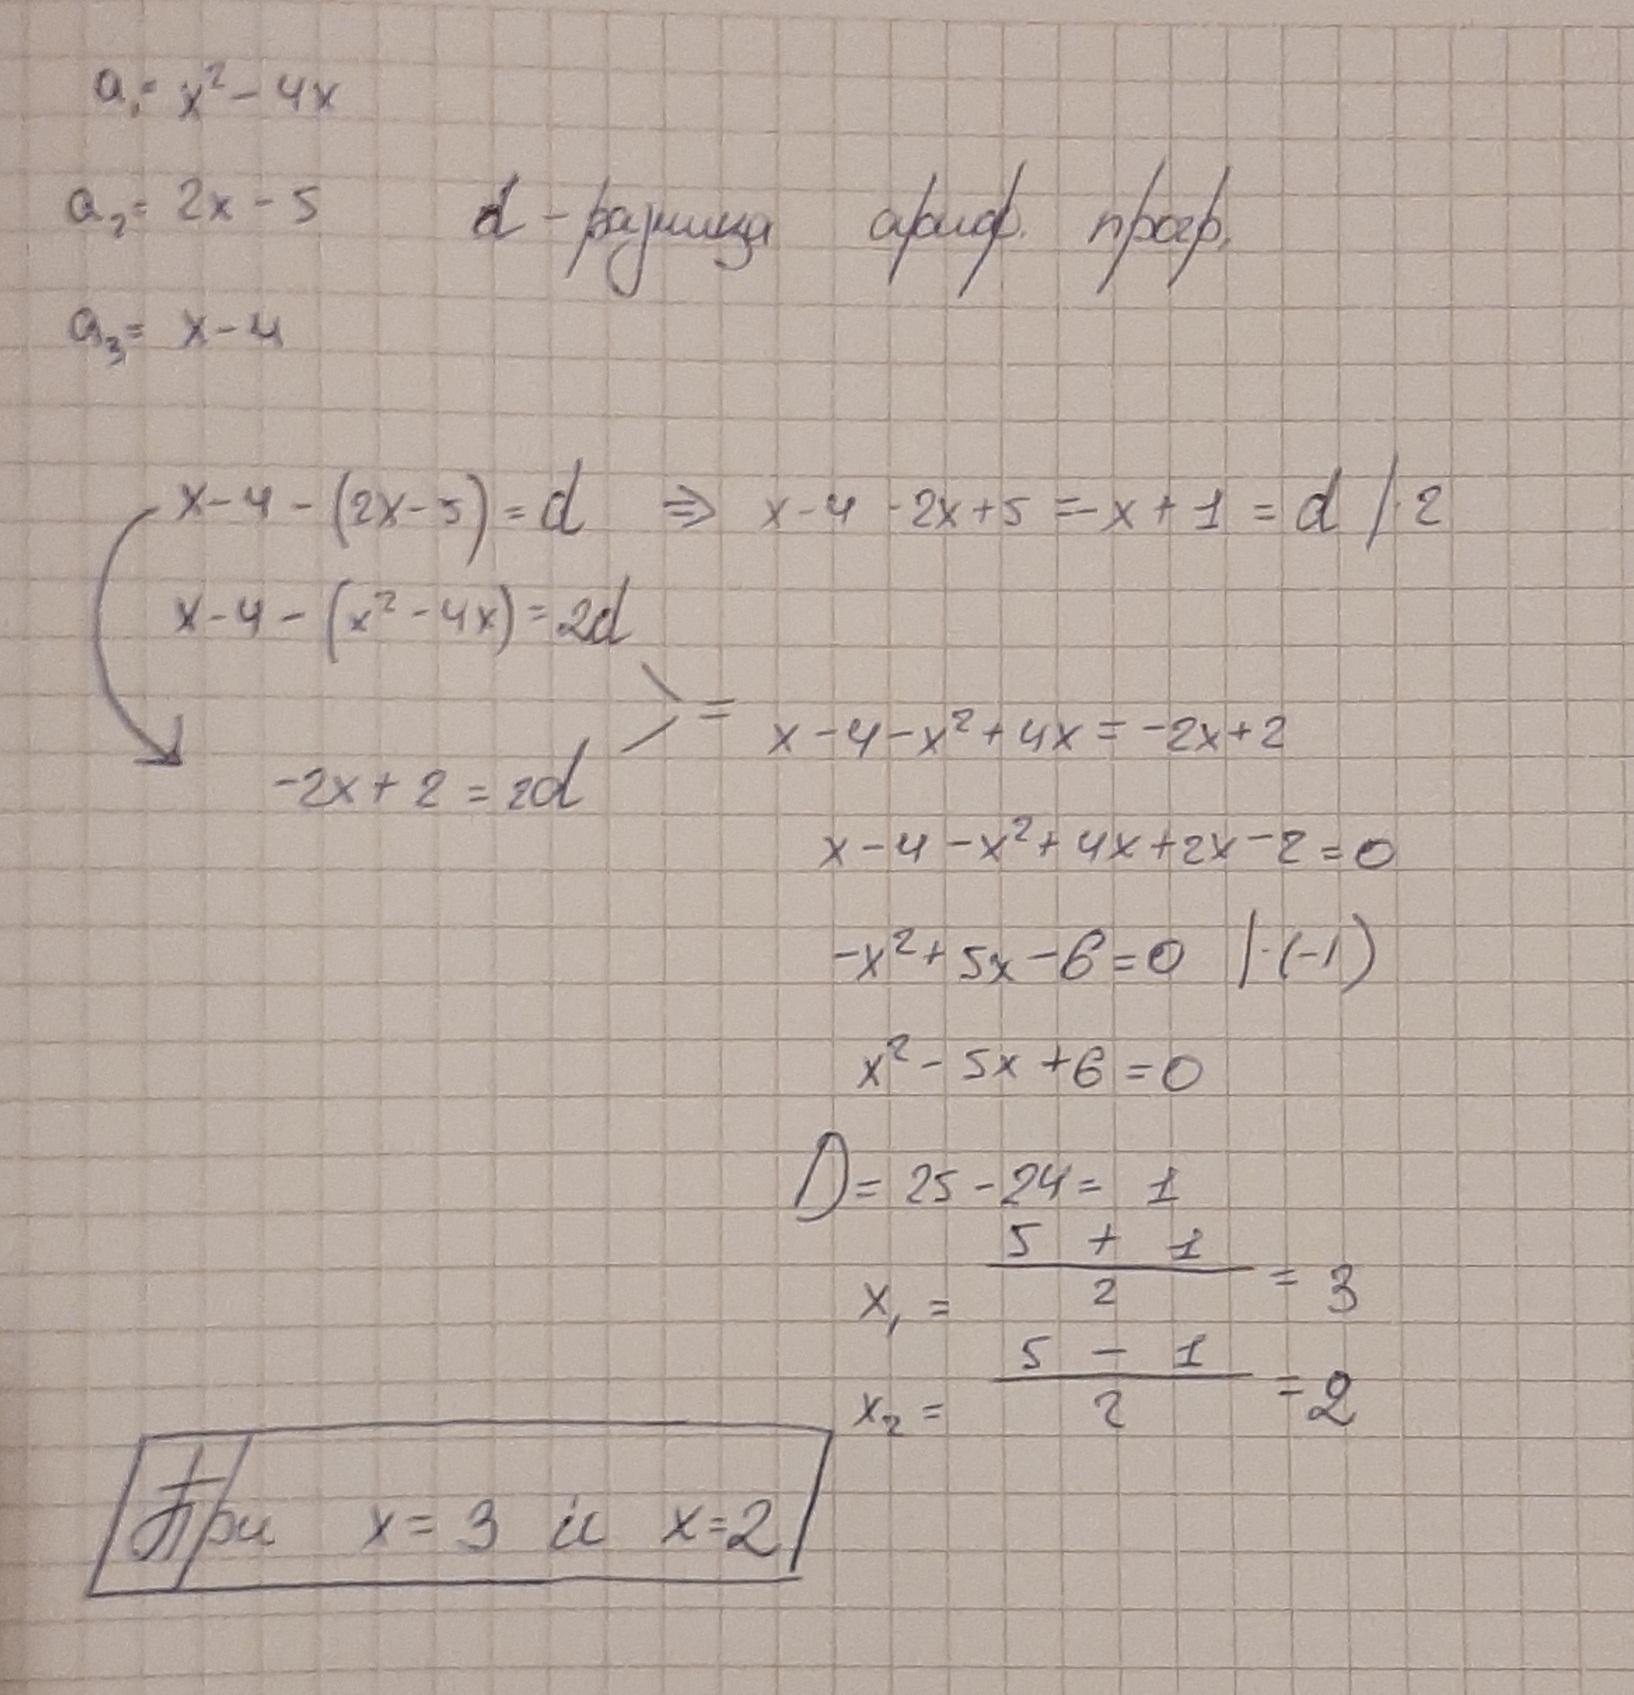 a₁= x² - 4x
a₂= 2x - 5
d - разница ариф. прогр.
a₃= x - 4
x - 4 - (2x - 5) = d ⇒ x - 4 - 2x + 5 = -x + 1 = d | · 2
x - 4 - (x² - 4x) = 2d
=
x - 4 - x² + 4x = -2x + 2
-2x + 2 = 2d
x - 4 - x² + 4x + 2x - 2 = 0
-x² + 5x - 6 = 0 | · (-1)
x² - 5x + 6 = 0
D = 25 - 24 = 1
x₁ = (5 + 1)/2 = 3
x₂ = (5 - 1)/2 = 2
При x = 3 и x = 2